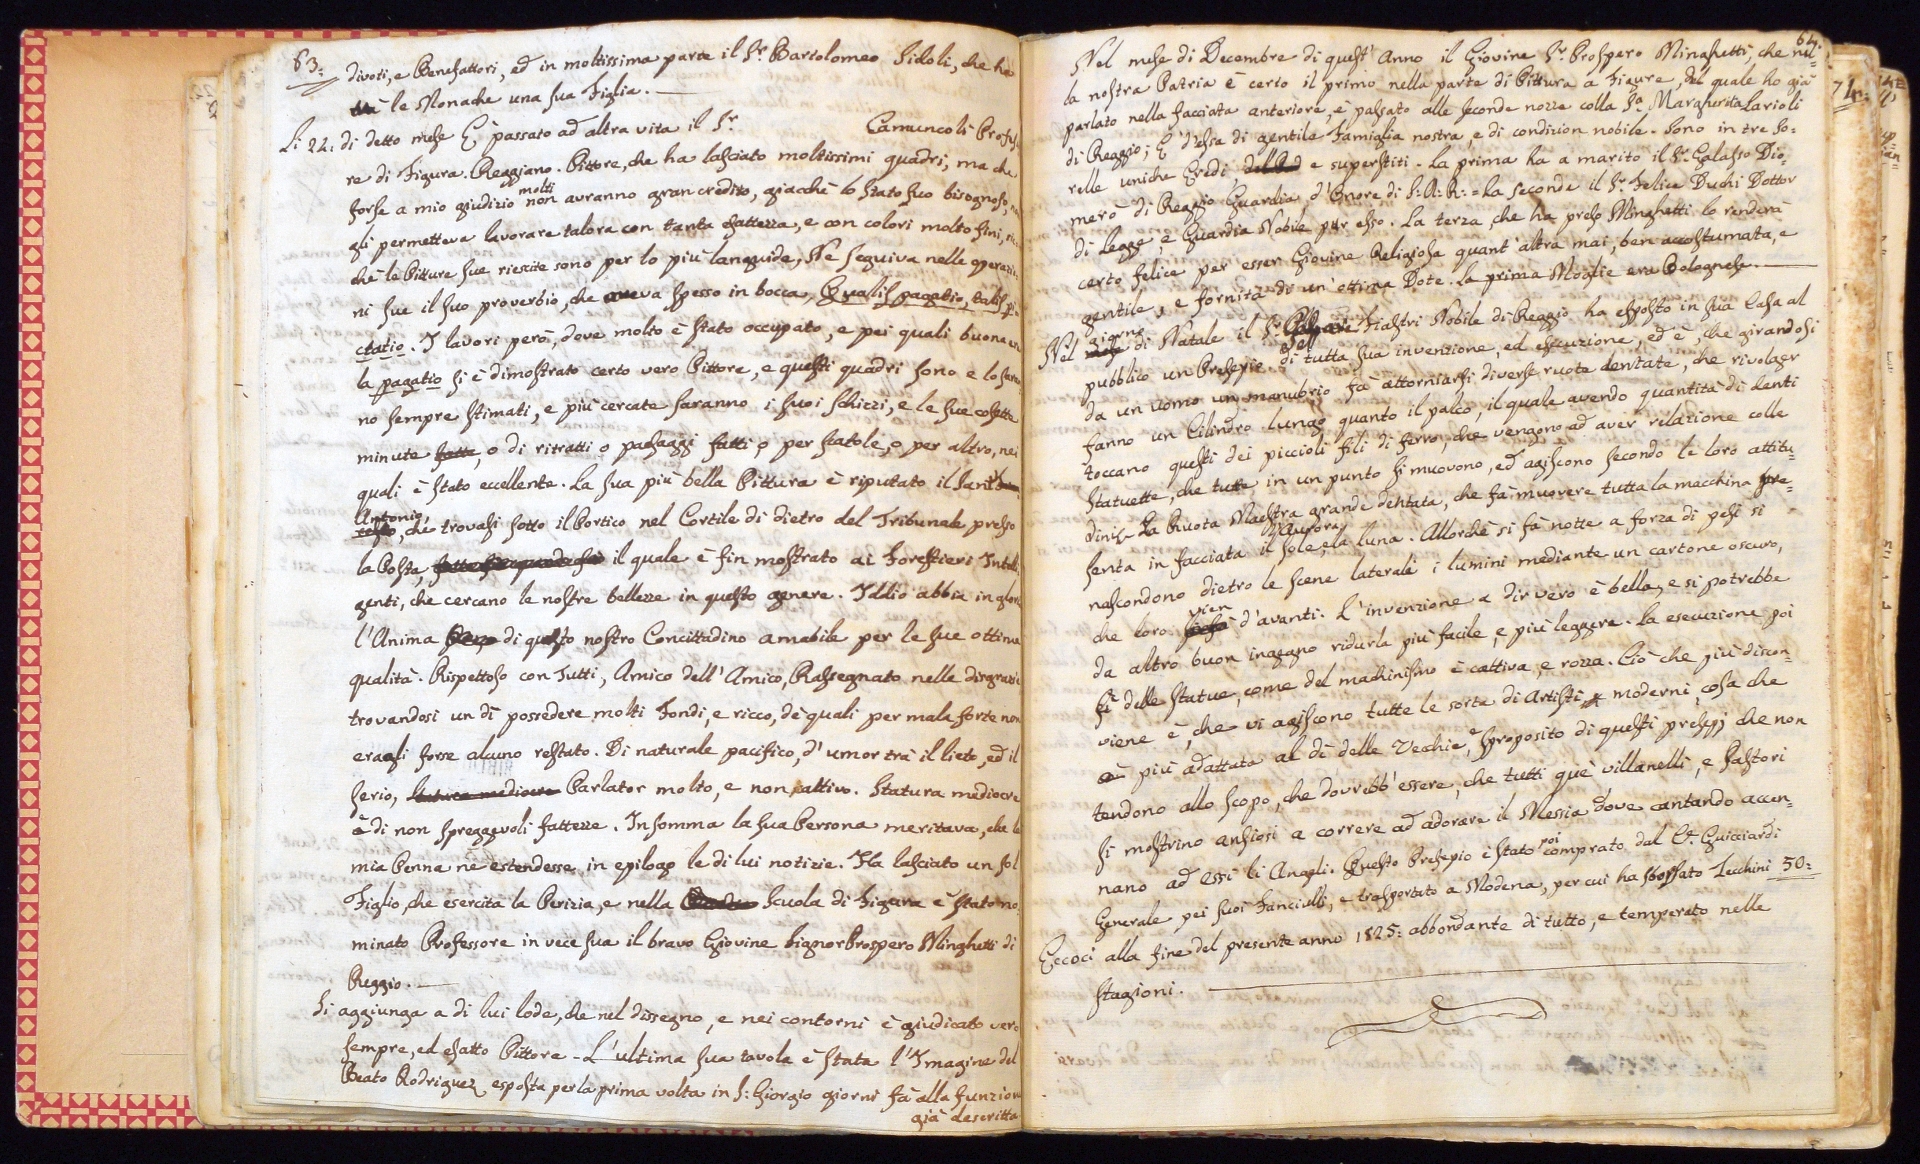 63:
divoti, e Benefattori, ed in moltissima parte il Sr. Bartolomeo Sidoli, che ha
le Monache una sua Figlia.
Li 22: di detto mese È passato ad altra vita il Sr. Camuncoli Profes
re di Figura. Reggiano. Pittore, che ha lasciato moltissimi quadri, ma che
forse a mio giudizio molti non avranno gran credito, giacchè lo stato suo bisognoso, n
gli permetteva lavorare talora con tanta esattezza, e con colori molto fini,
chè le Pitture sue riescite sono per lo più languide, Ne seguiva nelle operazi
ni sue il suo proverbio, che aveva spesso in bocca, Qualis pagatio, talis pi
ctatio. I lavori però, dove molto è stato occupato, e pei quali buona
la pagatio si è dimostrato certo vero Pittore, e questi quadri sono e lo sara
no sempre stimati, e più cercate saranno i suoi schizzi, e le sue cosette
minute fatte, o di ritratti o paesaggi fatti o per scatole, o per altro, nei
quali è stato eccellente. La sua più bella Pittura è riputato il Sant'
Antonio,
che trovasi sotto il Portico nel Cortile di dietro del Tribunale presso
la Posta, il quale è fin mostrato ai Forestieri Intelli
genti, che cercano le nostre bellezze in questo genere. Iddio abbia in glori
l'Anima di questo nostro Concittadino amabile per le sue ottime
qualità. Rispettoso con Tutti, Amico dell'Amico, Rassegnato nelle disgrazie
trovandosi un dì possedere molti Fondi, e ricco, de' quali per mala sorte non
eragli forse alcuno restato. Di naturale pacifico, d'umor trà il lieto, ed il
serio, statura mediocre Parlator molto, e non cattivo. Statura mediocre
e di non spreggevoli fattezze. In somma la sua Persona meritava, che la
mia Penna ne estendesse in epilogo le di lui notizie. Ha lasciato un sol
Figlio, che esercita la Perizia, e nella Scuola di Figura è stato no:
minato Professore in vece sua il bravo Giovine Signor Prospero Minghetti di
Reggio.
Si aggiunga a di lui lode, che nel dissegno, e nei contorni è giudicato vero
sempre, ed esatto Pittore - L'ultima sua tavola è stata l'Imagine del
Beato Rodriguez esposta per la prima volta in S: Giorgio giorni fà alla funzion
già descritta
64:
Nel mese di Decembre di quest'Anno il Giovine Sr. Prospero Minghetti, che nel=
la nostra Patria è certo il primo nella parte di Pittura a Figure, del quale ho già
parlato nella facciata anteriore, è passato alle seconde nozze colla Sa. Margherita Larioli
di Reggio; È d'essa di gentile Famiglia nostra, e di condizion nobile. Sono in tre So:
relle uniche Eredi e superstiti. La prima ha a marito il Sr. Galasso Dio,
maro di Reggio Guardia d'Onore di S: A: R: = La seconda il Sr. Felice Duchi Dottor
di Legge e Guardia Nobile pur esso. La terza, che ha preso Minghetti lo renderà
certo felice per esser Giovine Religiosa quant'altra mai, ben accostumata, e
gentile, e fornita di un'ottima Dote. La prima Moglie era Bolognese.
Nel giorno di Natale il Sr. Fiastri Nobile di Reggio ha esposto in sua Casa al
pubblico un Presepio di tutta sua invenzione, ed esecuzione, ed è, che girandosi
da un uomo un manubrio fà attorniarsi diverse ruote dentate, che rivolger
fanno un Cilindro lungo quanto il palco, il quale avendo quantità di denti
toccano questi dei piccioli fili di ferro, che vengono ad aver relazione colle
Statuette, che tutte in un punto si muovono, ed agiscono secondo le loro attitu=
dini - La Ruota Maestra grande dentata, che fà muovere tutta la macchina pre=
senta in facciata l'Aurora, il Sole, e la Luna. Allorchè si fà notte a forza di pesi si
nascondono dietro le scene laterali i lumini mediante un cartone oscuro,
che loro vien d'avanti. L'invenzione a dir vero è bella, e si potrebbe
da altro buon ingegno ridurla più facile, e più leggere. La esecuzione poi
sì delle Statue, come del machinismo è cattiva, e rozza. Ciò che più discon=
viene è, che vi agiscono tutte le sorte di Artisti moderni, cosa che
è più adattata al dì delle Vecchie, e sproposito di questi presepj che non
tendono allo scopo, che dovrebb'essere, che tutti que' villanelli, e Pastori
si mostrino ansiosi a correre ad adorare il Messia dove cantando accen=
nano ad essi li Angeli. Questo Presepio è stato poi comprato dal Ce. Guicciardi
Generale pei suoi Fanciulli, e trasportato a Modena, per cui ha sborsato Zecchini 50:
Eccoci alla fine del presente anno 1825: abbondante di tutto, e temperato nelle
stagioni.
71: